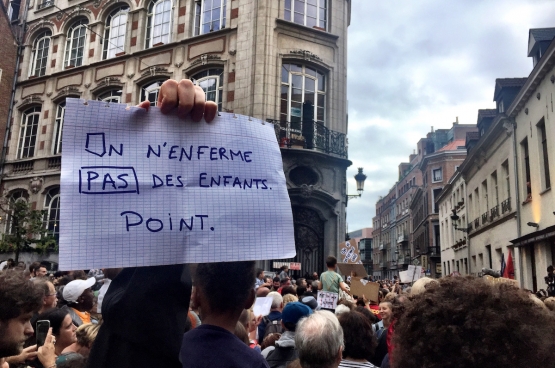 ON N'ENFERME
PAS DES ENFANTS.
POINT.